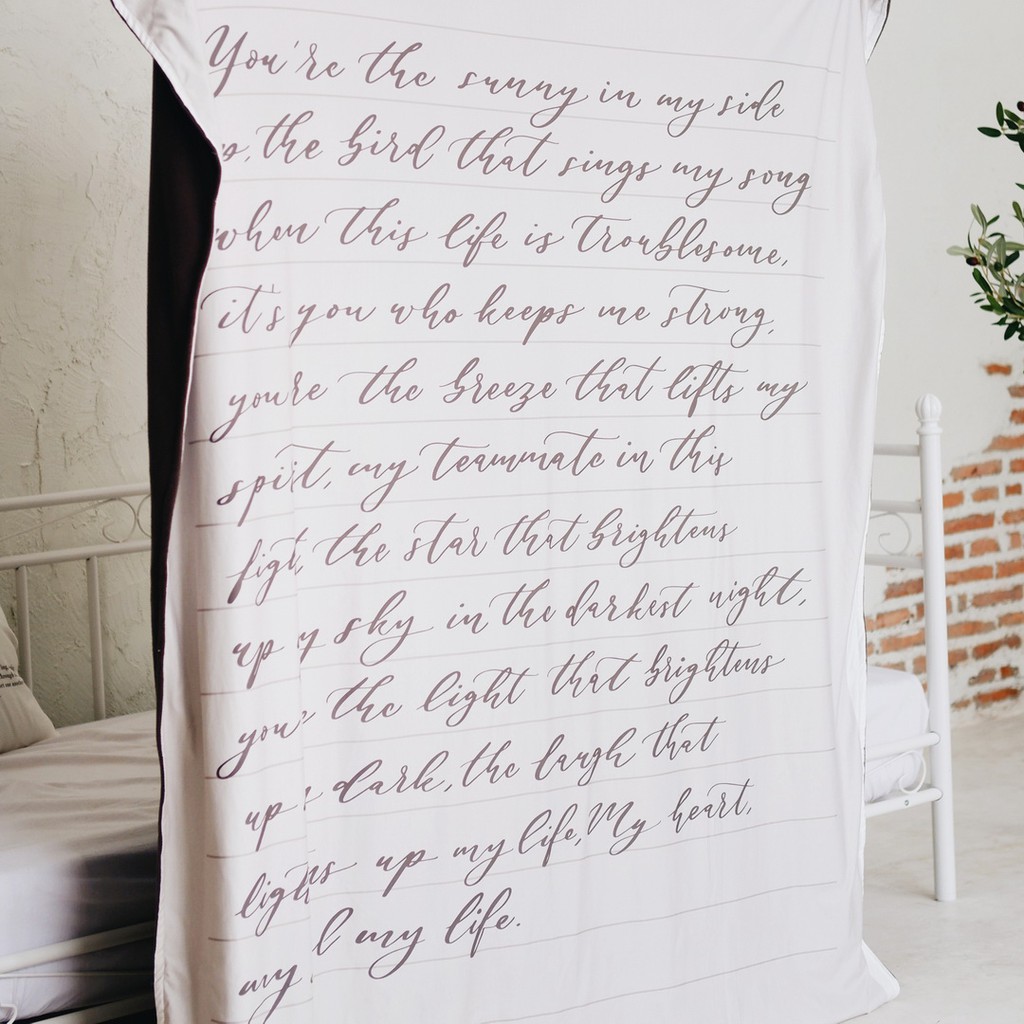 You're the sunny in my side
the bird that sings my song
when this life is troublesome,
it's you who keeps me strong,
you're the breeze that lifts my
spirit, my teammate in this
fight, the star that brightens
up my sky in the darkest night,
you're the light that brightens
up dark, the laugh that
lights up my life, My heart,
my my life.